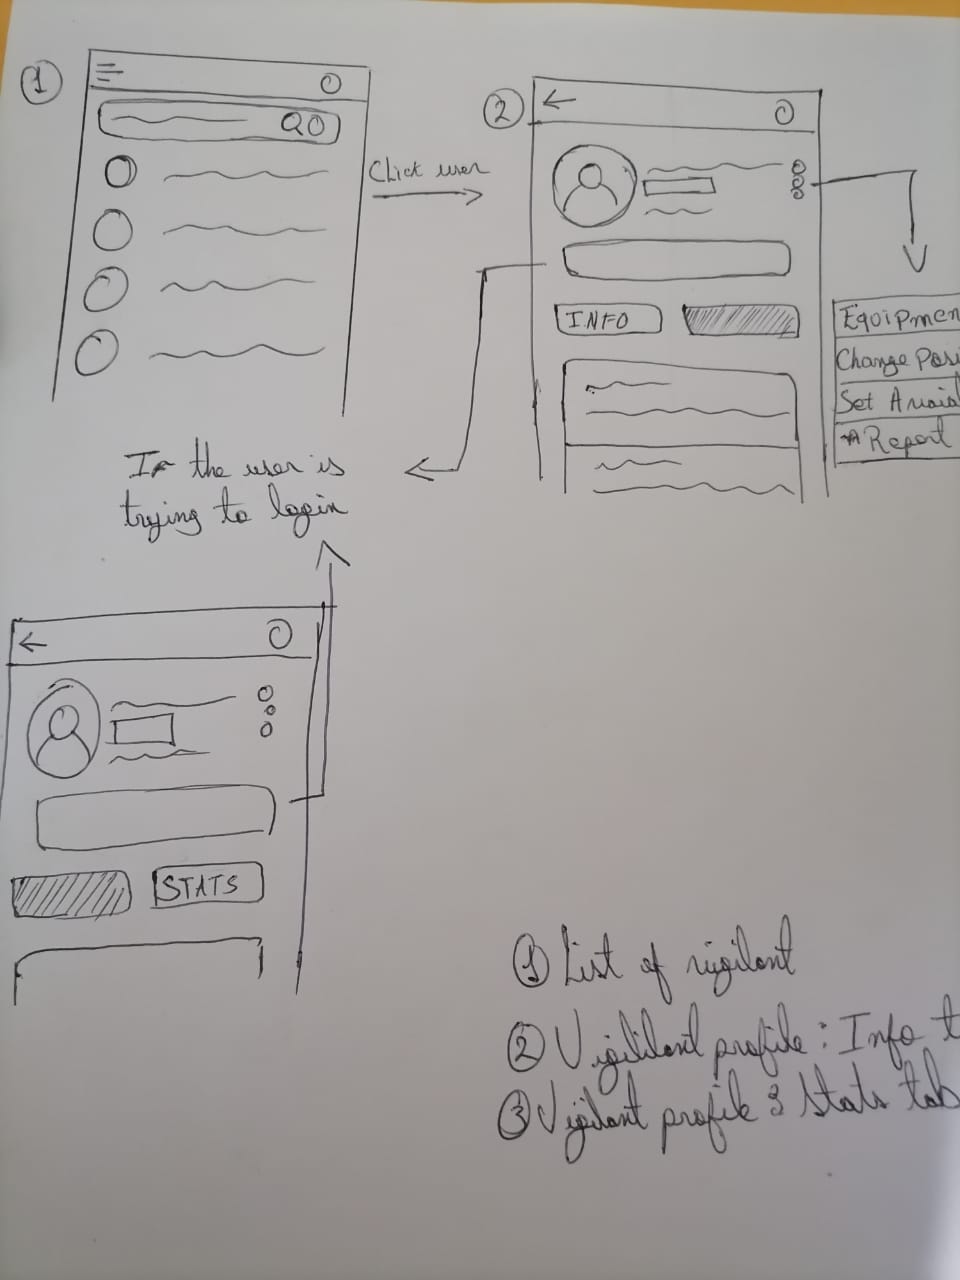 1
Click user
2
INFO
Equipmen
Change Posi
Set
Report
If the user is
trying to login
STATS
① List of
② profile : Info t
③ Vigilant profile : Stats tab